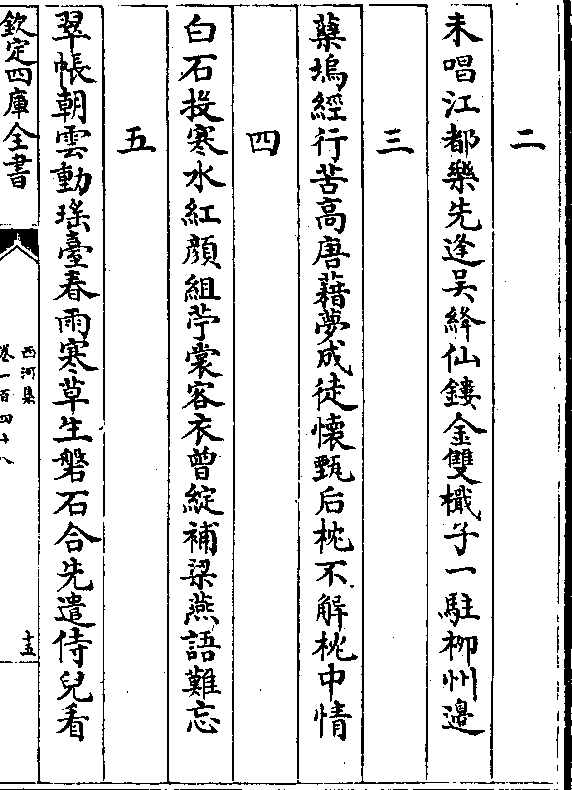 二
未唱江都樂先逢吴絳仙鏤金雙檝子一駐柳州邊
三
蘗塢經行苦高唐藉夢成徒懐甄后枕不解枕中情
四
白石投寒水紅顔組苧裳客衣曾綻補梁燕語難忘
五
翠帳朝雲動瑤臺春雨寒草生磐石合先遣侍兒看
欽定四庫全書
西河集
卷一百四十八
十五